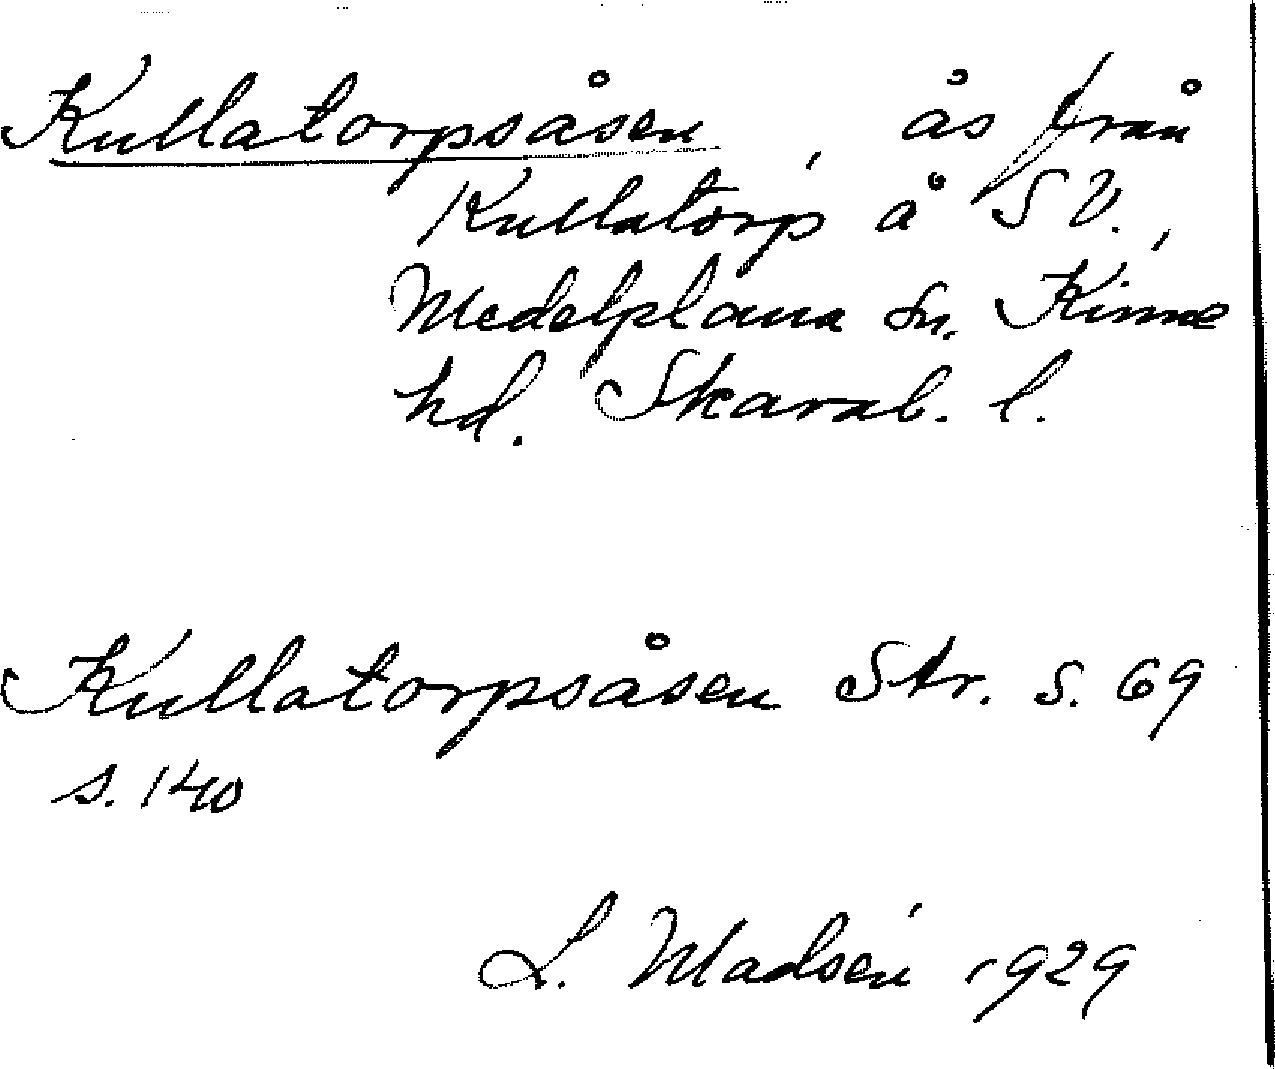 Kullatorpsåsen, ås från
Kullatorp å SV.,
Medelplana sn. Kinne
hd. Skarab. l.
Kullatorpsåsen Str. S. 69
s. 140
L. Madsén 1929